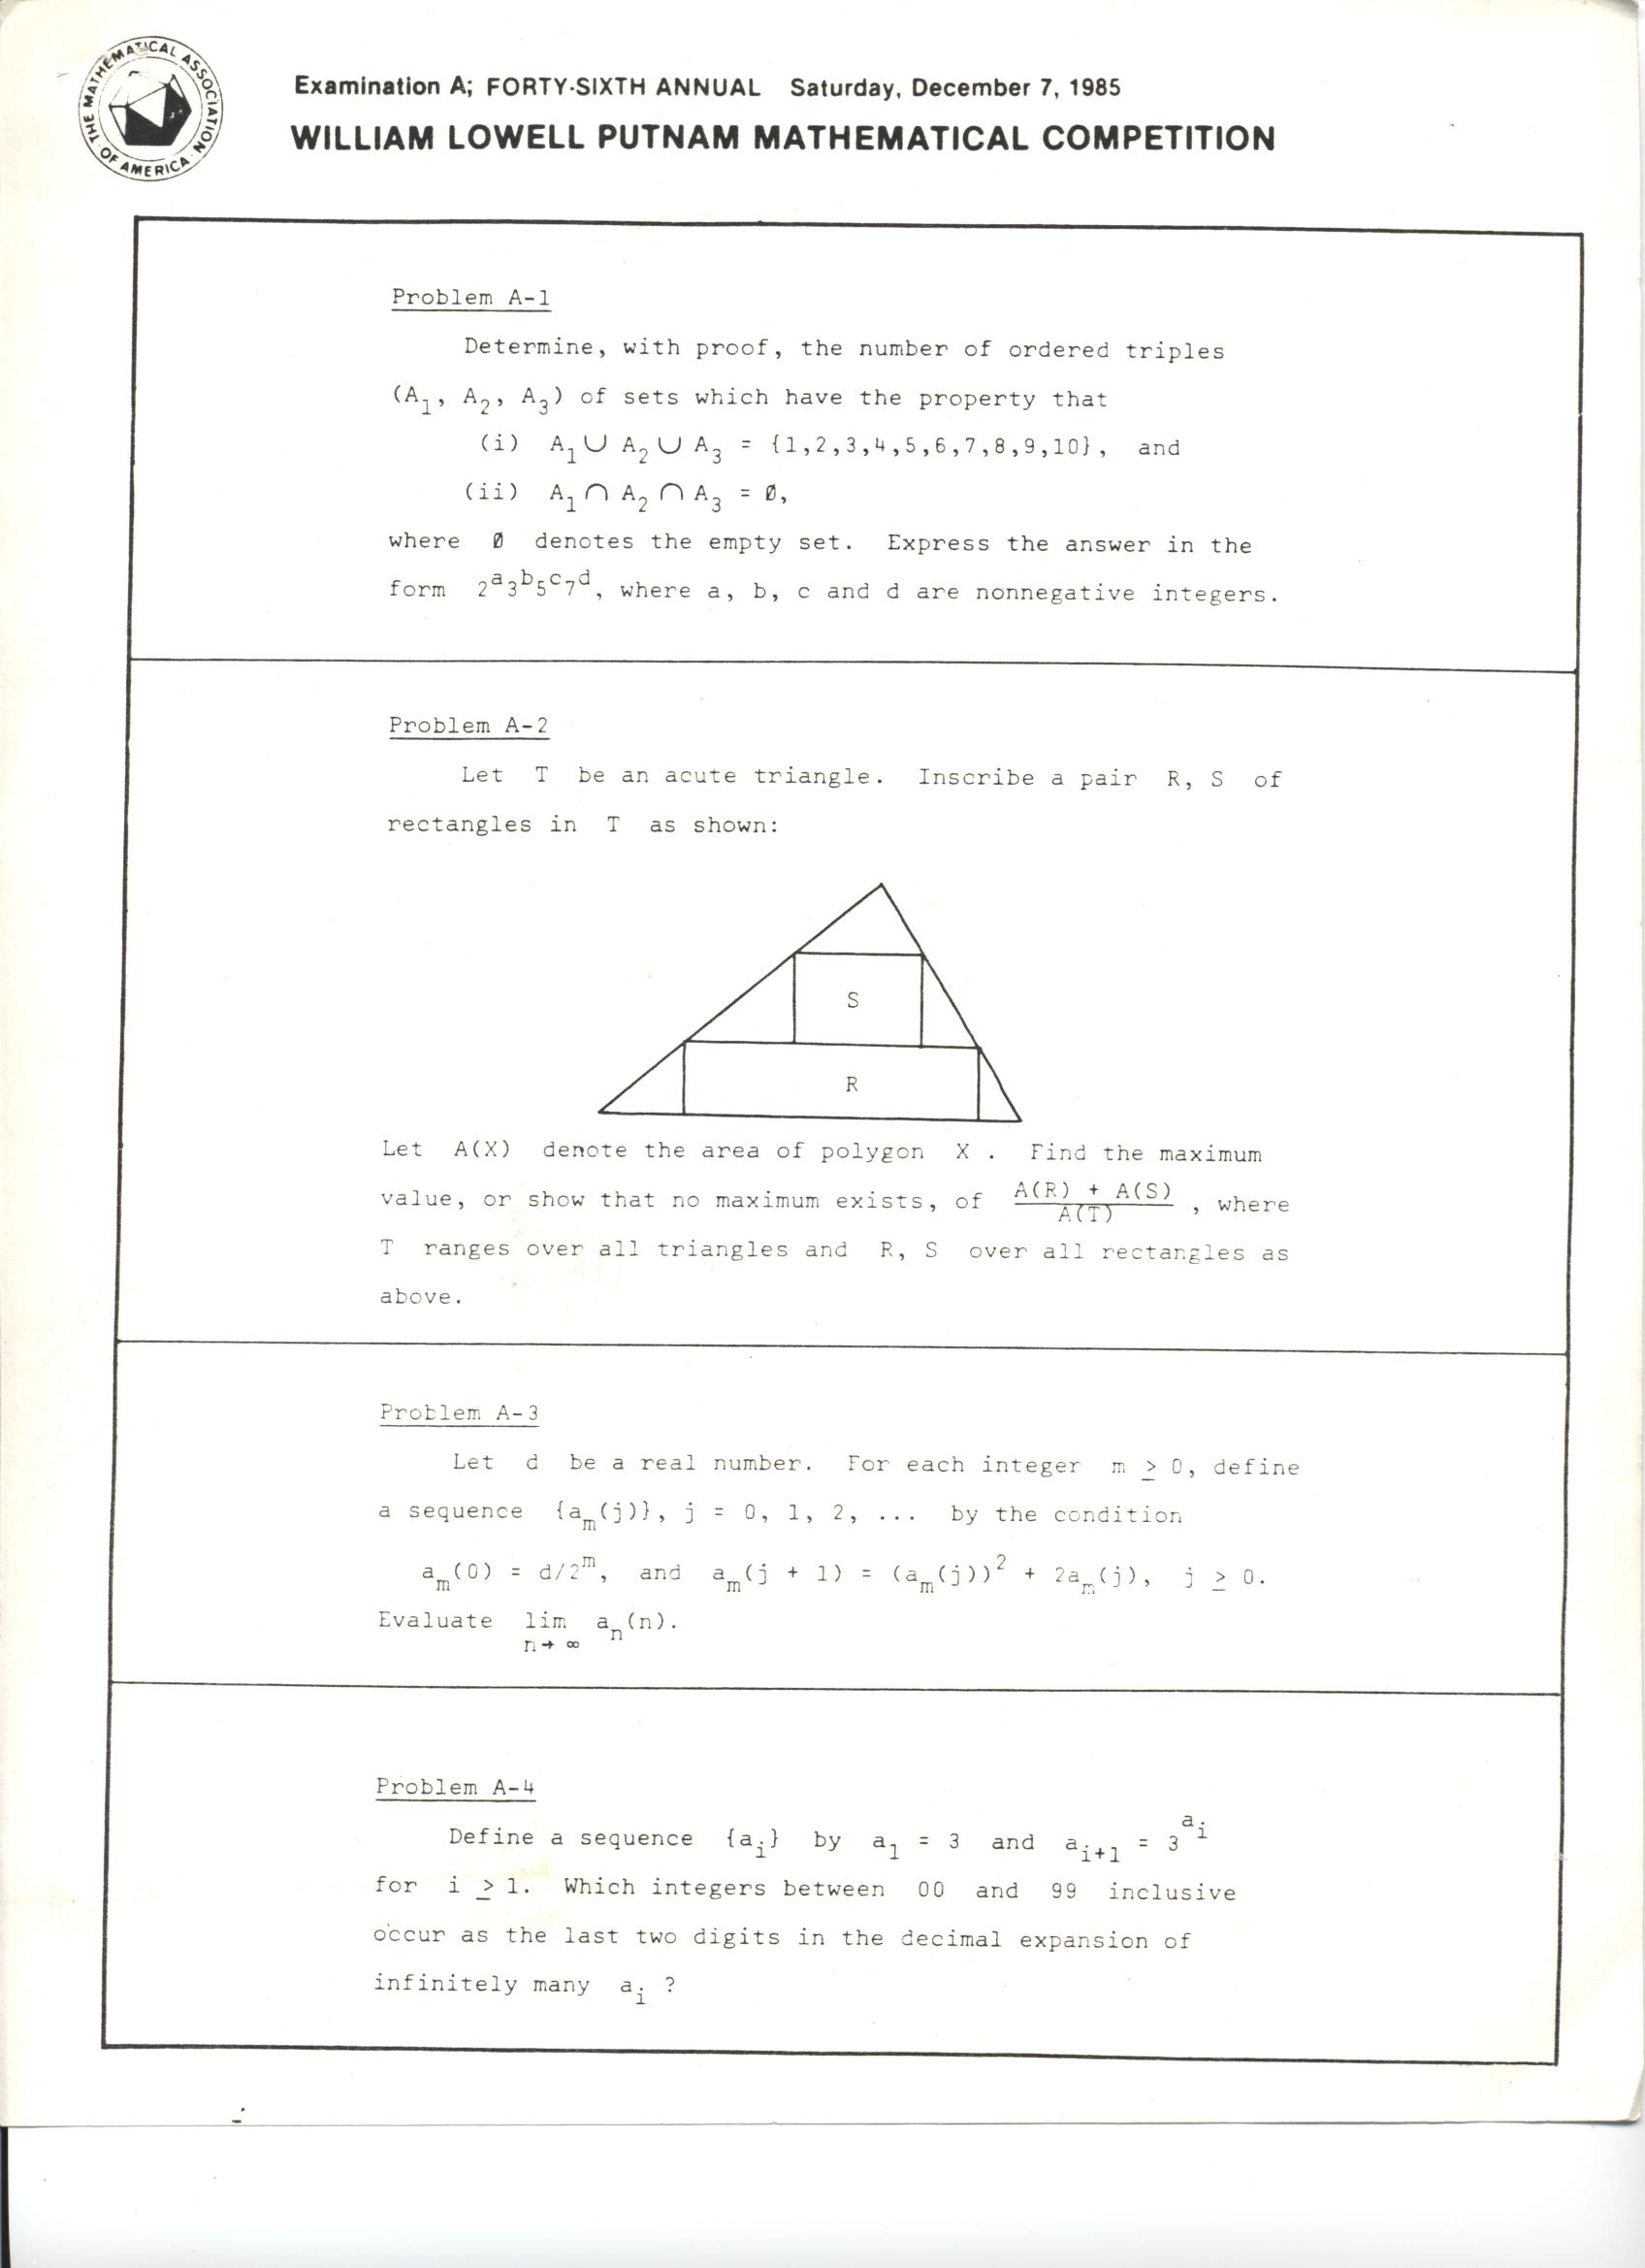 THE MATHEMATICAL ASSOCIATION OF AMERICA
Examination A; FORTY-SIXTH ANNUAL Saturday, December 7, 1985
WILLIAM LOWELL PUTNAM MATHEMATICAL COMPETITION
Problem A-1
Determine, with proof, the number of ordered triples
(A₁, A₂, A₃) of sets which have the property that
(i) A₁ ∪ A₂ ∪ A₃ = {1,2,3,4,5,6,7,8,9,10}, and
(ii) A₁ ∩ A₂ ∩ A₃ = Ø,
where Ø denotes the empty set. Express the answer in the
form 2ᵃ3ᵇ5ᶜ7ᵈ, where a, b, c and d are nonnegative integers.
Problem A-2
Let T be an acute triangle. Inscribe a pair R, S of
rectangles in T as shown:
S
R
Let A(X) denote the area of polygon X . Find the maximum
value, or show that no maximum exists, of (A(R) + A(S))/A(T) , where
T ranges over all triangles and R, S over all rectangles as
above.
Problem A-3
Let d be a real number. For each integer m ≥ 0, define
a sequence {aₘ(j)}, j = 0, 1, 2, ... by the condition
aₘ(0) = d/2ᵐ, and aₘ(j + 1) = (aₘ(j))² + 2aₘ(j), j ≥ 0.
Evaluate lim aₙ(n).
n→ ∞
Problem A-4
Define a sequence {aᵢ} by a₁ = 3 and aᵢ₊₁ = 3^aᵢ
for i ≥ 1. Which integers between 00 and 99 inclusive
occur as the last two digits in the decimal expansion of
infinitely many aᵢ ?